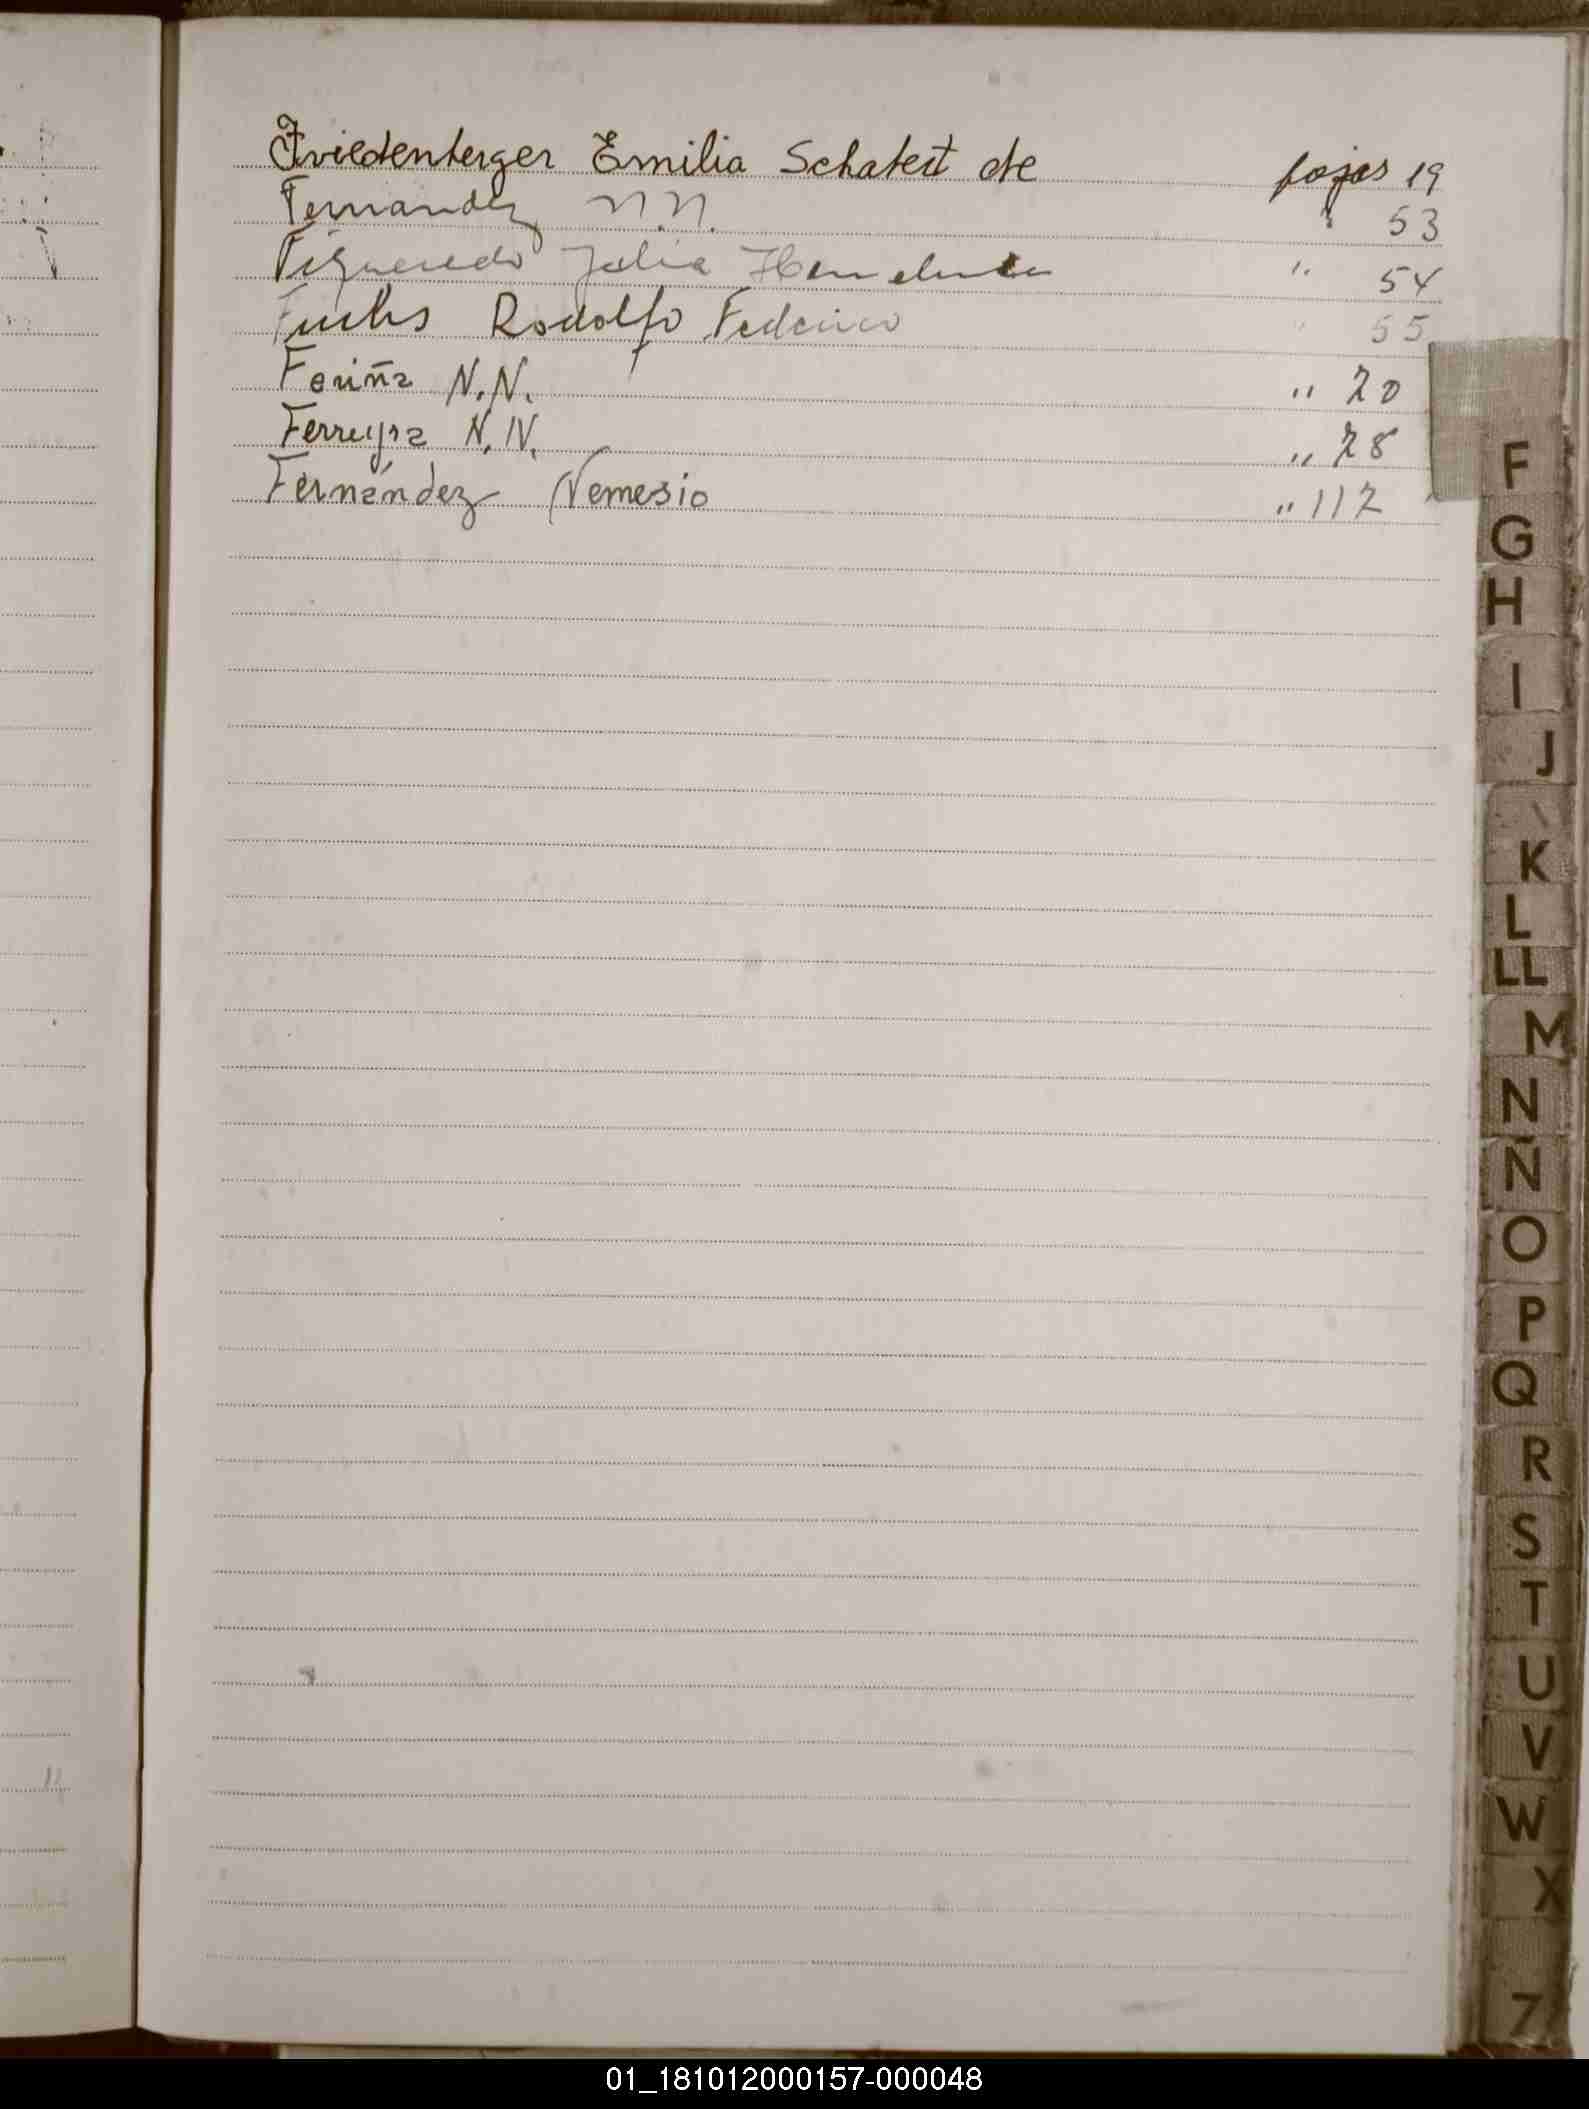 Friedenberger Emilia Schatert de fojas 19
Fernandez N.N. " 53
Figueredo Julia " 54
Fuchs Rodolfo Federico " 55
Fariña N.N. " 20
Ferreyra N.N. " 28
Fernández Nemesio " 112
F
G
H
I
J
K
L
LL
M
N
Ñ
O
P
Q
R
S
T
U
V
W
X
Z
01_181012000157-000048